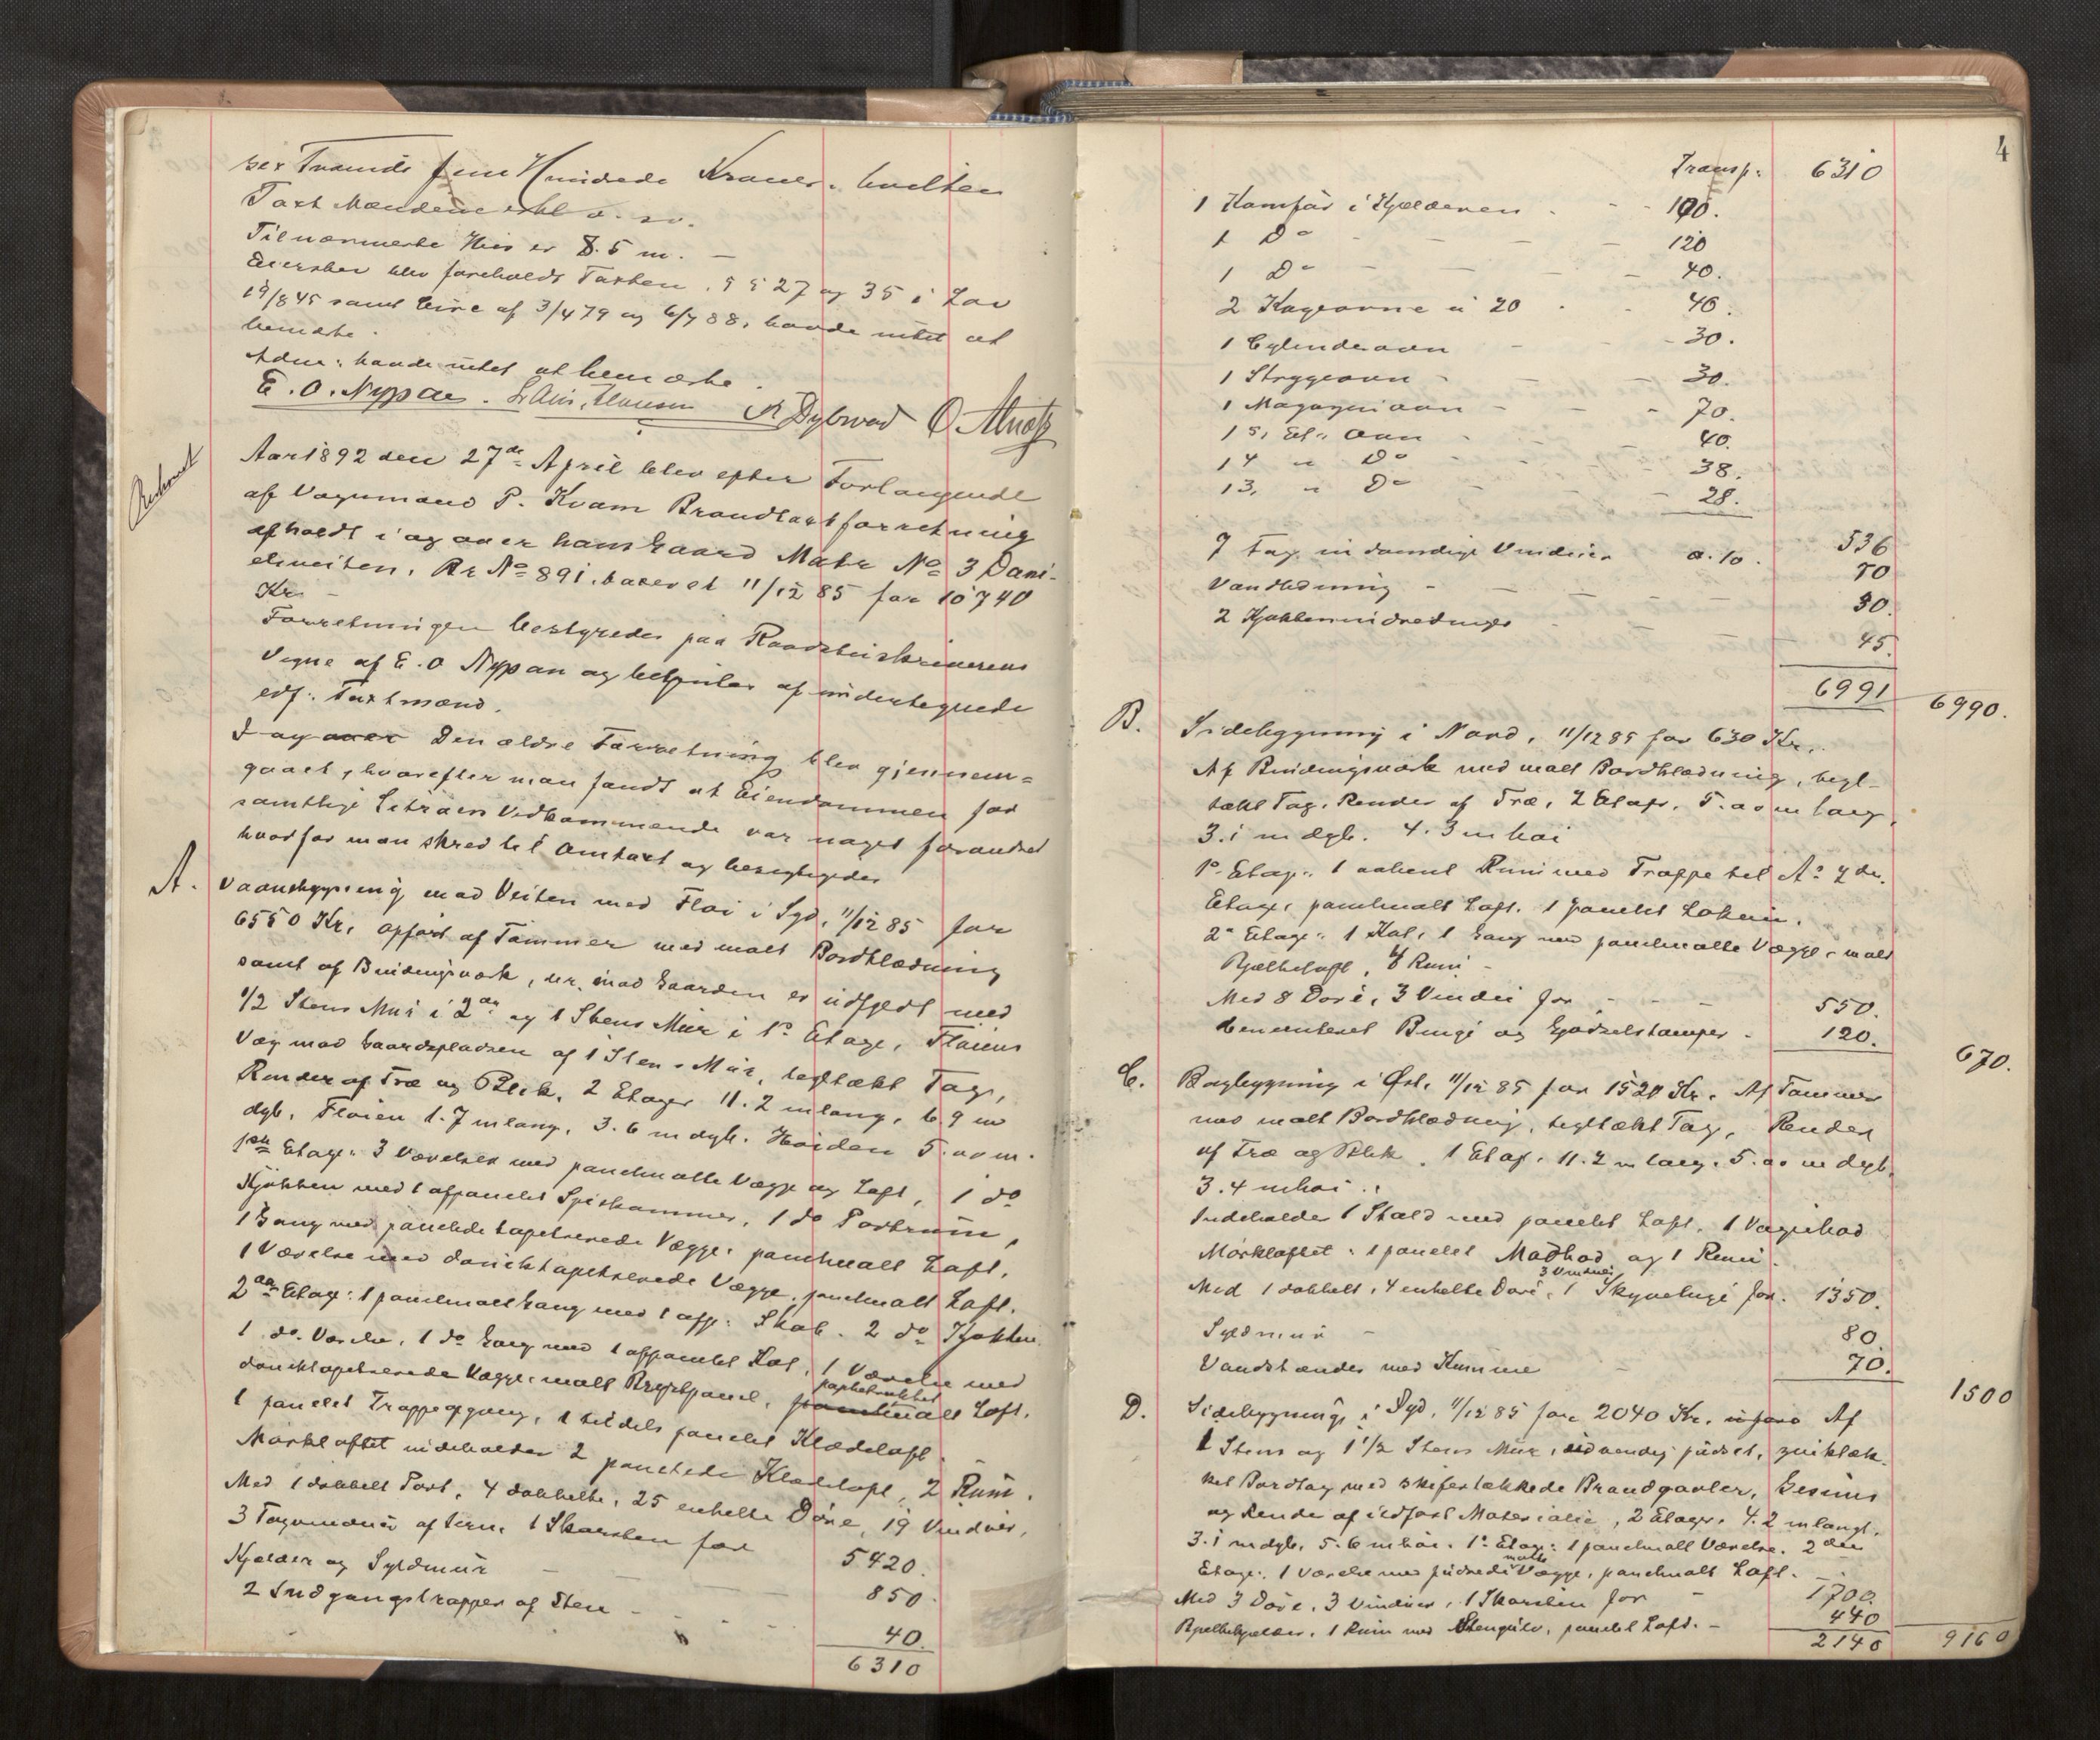 ser Tusinde fem Hundrede Kroner. hvilken
Taxt Mændene
Tilnærmeste Hus er 8.5 m. —
Eiersken blev foreholdt Taxten, § § 27 og 35 i Lov
19/8 45 samt Love af 3/4 79 og 6/7 88, havde intet at
bemærke.
Adm: havde intet at bemærke.
E. O. Nypan. Hansen A Dybwad O. Alstad
Aar 1892 den 27de April blev efter Forlangende
af Vognmand P. Kvam Brandtaxtforretning
afholdt i og over hans Gaard Matr No 3 Dani-
elsveiten, Br No 891, taxeret 11/12 85 for 10740
Kr. —
Forretningen bestyredes paa Raadstuskriverens
Vegne af E. O Nypan og betjentes af undertegnede
edf. Taxtmænd.
I og over Den ældre Forretning blev gjennem=
gaaet, hvorefter man fandt at Eiendommen for
samtlige Litraers Vedkommende var noget forandret
hvorfor man skred til Omtaxt og besigtigedes
A. Vaaningsbygning mod Veiten med Fløi i Syd, 11/12 85 for
6550 Kr, opført af Tømmer med malt Bordklædning
samt af Bindingsværk, der mod Gaarden er udfyldt med
1/2 Stens Mur i 2den og 1 Stens Mur i 1ste Etage, Fløiens
Væg mod Gaardspladsen af 1 Stens Mur, tegltækt Tag,
Render af Træ og Blik. 2 Etager 11.2 m lang, 6.9 m
dyb, Fløien 1.7 m lang, 3.6 m dyb. Høiden 5.00 m.
1ste Etage: 3 Værelser med panelmalte Vægge og Loft, 1 do
Kjøkken med 1 afpanelet Spiskammer, 1 do Portrum,
1 Gang med panelede tapetserede Vægge, panelmalt Loft,
1 Værelse med donicktapetserede Vægge, panelmalt Loft.
2den Etage: 1 panelmalt Gang med 1 afp: Skab. 2 do Kjøkken
1 do Værelse, 1 do Gang med 1 afpanelet Kot, 1 Værelse med
donicktapetserede Vægge, malt Brystpanel, papbetrukket Loft.
1 panelet Trappegang, 1 tildels panelet Klædeloft
Mørkloftet indeholder 2 panelede Klædeloft, 2 Rum.
Med 1 dobbelt Port, 4 dobbelte, 25 enkelte Døre, 19 Vinduer,
3 Tagvinduer af Jern, 1 Skorsten for 5420.
Kjælder og Syldmur — — 850.
2 Indgangstrapper af Sten — — 40.
6310
4
Transp: 6310
1 Komfur i Kjælderen - - 100.
1 Do — — — 120
1 Do — — — 40.
2 Kogeovne a 20 - - 40.
1 Cylinderovn — — 30.
1 Strygeovn — — 30.
1 Magasinovn — — 70.
1 5, Et: Ovn — — 40.
1 4 " Do — — 38.
1 3, " Do — — 28.
536
7 Fag indvendige Vinduer a. 10. 70
Vandledning — — — 30.
2 Kjøkkenindredninger — — 45.
6991 6990.
B. Sidebygning i Nord, 11/12 85 for 630 Kr.
Af Bindingsværk med malt Bordklædning, tegl-
tækt Tag, Render af Træ, 2 Etager, 5.00 m lang,
3.1 m dyb. 4.3 m høi
1ste Etage: 1 aabent Rum med Trappe til As 2den
Etage, panelmalt Loft. 1 panelet Lokum.
2den Etage: 1 Kot, 1 Gang med panelmalte Vægge, malt
Bjælkeloft, Rum —
Med 8 Døre, 3 Vinduer for — — — 550.
Cementeret Binge og Gjødselskamper - 120.
670.
C. Bagbygning i Øst, 11/12 85 for 1520 Kr. Af Tømmer
med malt Bordklædning, tegltækt Tag, Render
af Træ og Blik, 1 Etage, 11.2 m lang, 5.00 m dyb,
3.4 m høi.
Indeholder 1 Stald med panelet Loft, 1 Vognbod
Mørkloftet: 1 panelet Madbod og 1 Rum.
3 Vinduer
Med 1 dobbelt, 4 enkelte Døre, 1 Skyveluge for. 1350.
Syldmur — 80.
Vandstænder med Kumme — 70.
1500
D. Sidebygning i Syd, 11/12 85 for 2040 Kr. Af
1 Stens og 1 1/2 Stens Mur, udvendig pudset, zinktæk-
ket Bordtag med skifertækkede Brandgavler, Gesims
og Render af ildfast Materialie, 2 Etager, 4.2 m langt,
3.1 m dyb, 5.6 m høi. 1ste Etage: 1 panelmalt Værelse. 2den
Etage: 1 Værelse med pudsede malte Vægge, panelmalt Loft. —
Med 3 Døre, 3 Vinduer, 1 Skorsten for 1700.
Bjælkekjælder, 1 Rum med Stengulv, panelet Loft. — 440
2140 9160